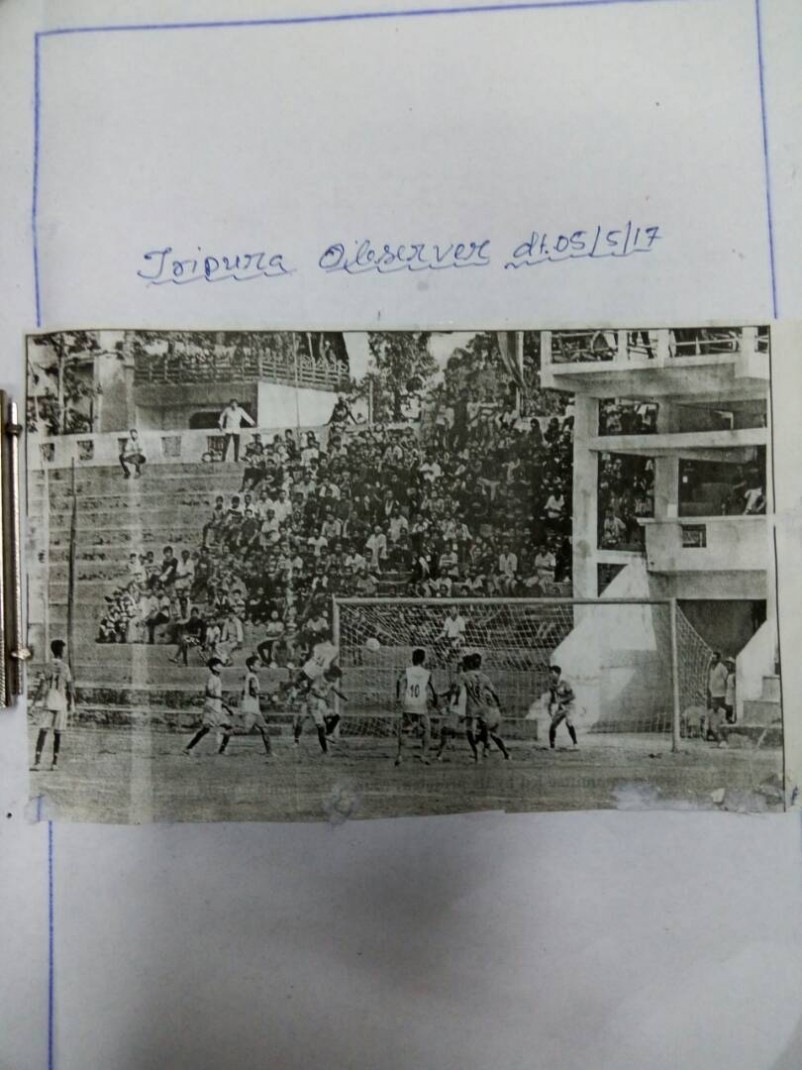 Tripura Observer dt.05/5/17
10